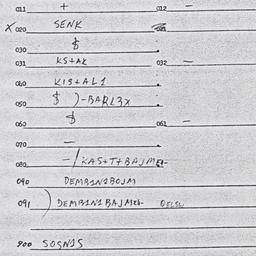 011 + 012 —
X 020 SENK 021
030 $
031 KS+AL 032 —
040 KIS+AL1
050 $ )-BARL3X
060 $ 061 —
070 —
080 -/KAS+T+BAJMEL
090 DEMBINIBOJM
091 ) DEMBINIBAJMEL OELSU
900 SOSNIS